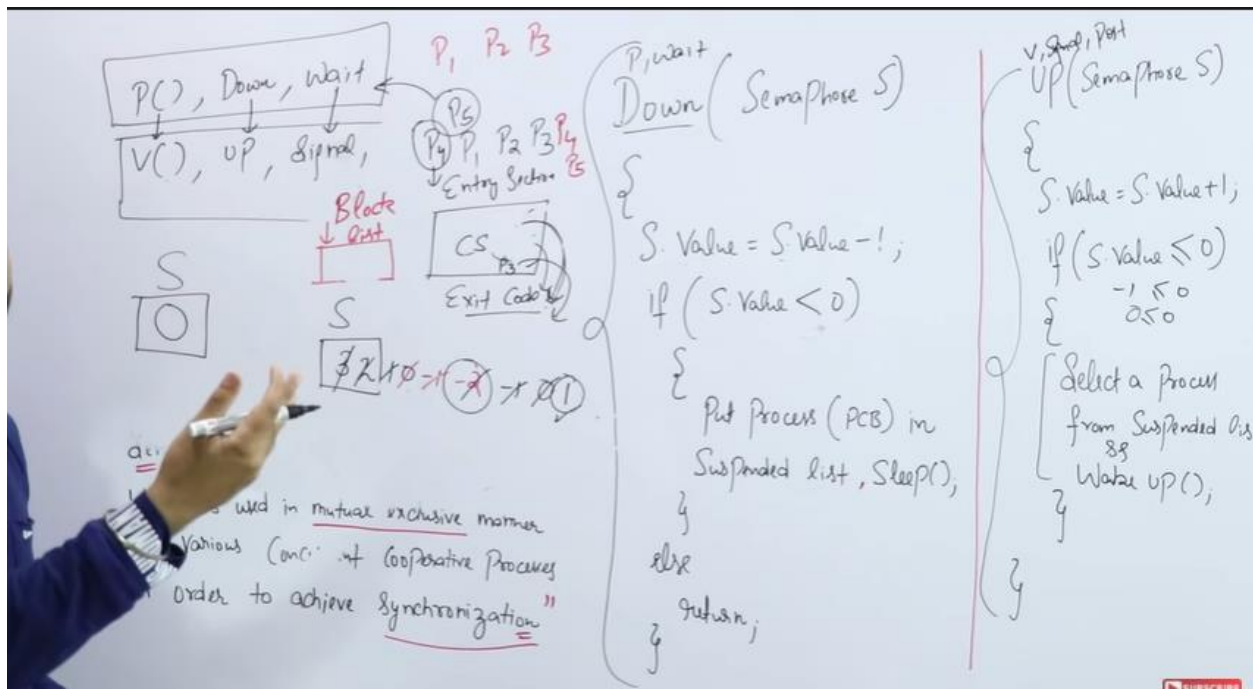 P(), Down, Wait
V(), UP, Signal,
P1 P2 P3
P5
P4 P1 P2 P3 P4
P5
Entry Section
CS
P3
Exit Code
Block
list
S
0
S
3 2 1 0 -1 -2 -1 0 1
used in mutual exclusive manner
Various Cooperative Processes
order to achieve Synchronization"
P, wait
Down (Semaphore S)
{
S. Value = S. Value - 1;
if (S. Value < 0)
{
Put Process (PCB) in
Suspended list, Sleep();
}
else
return;
}
V, Signal, Post
UP (Semaphore S)
{
S. Value = S. Value + 1;
if (S. Value ≤ 0)
-1 ≤ 0
0 ≤ 0
{
Select a Process
from Suspended
Wake UP();
}
}
SUBSCRIBE